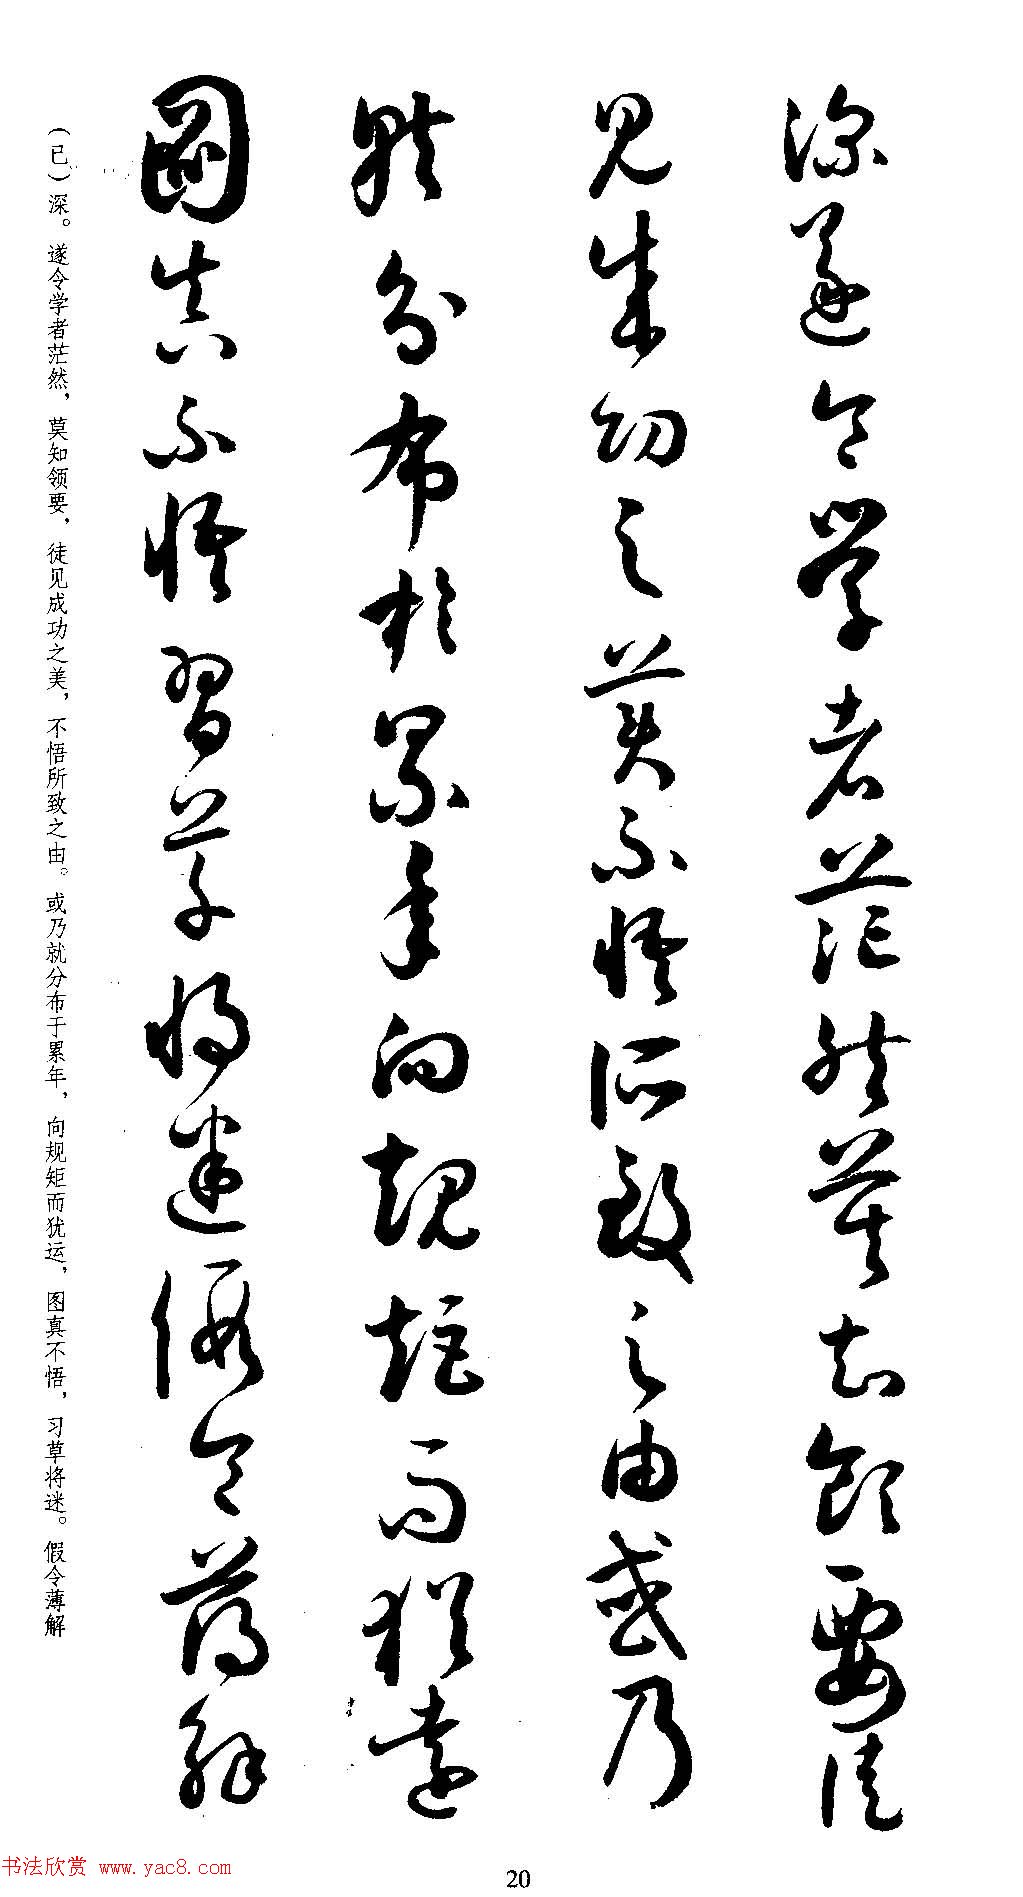 深遂令学者茫然莫知领要徒
见成功之美不悟所致之由或乃
就分布於累年向规矩而犹远
图真不悟习草将迷假令薄解
(已)深。遂令学者茫然，莫知领要，徒见成功之美，不悟所致之由。或乃就分布于累年，向规矩而犹运，图真不悟，习草将迷。假令薄解
书法欣赏 www.yac8.com
20